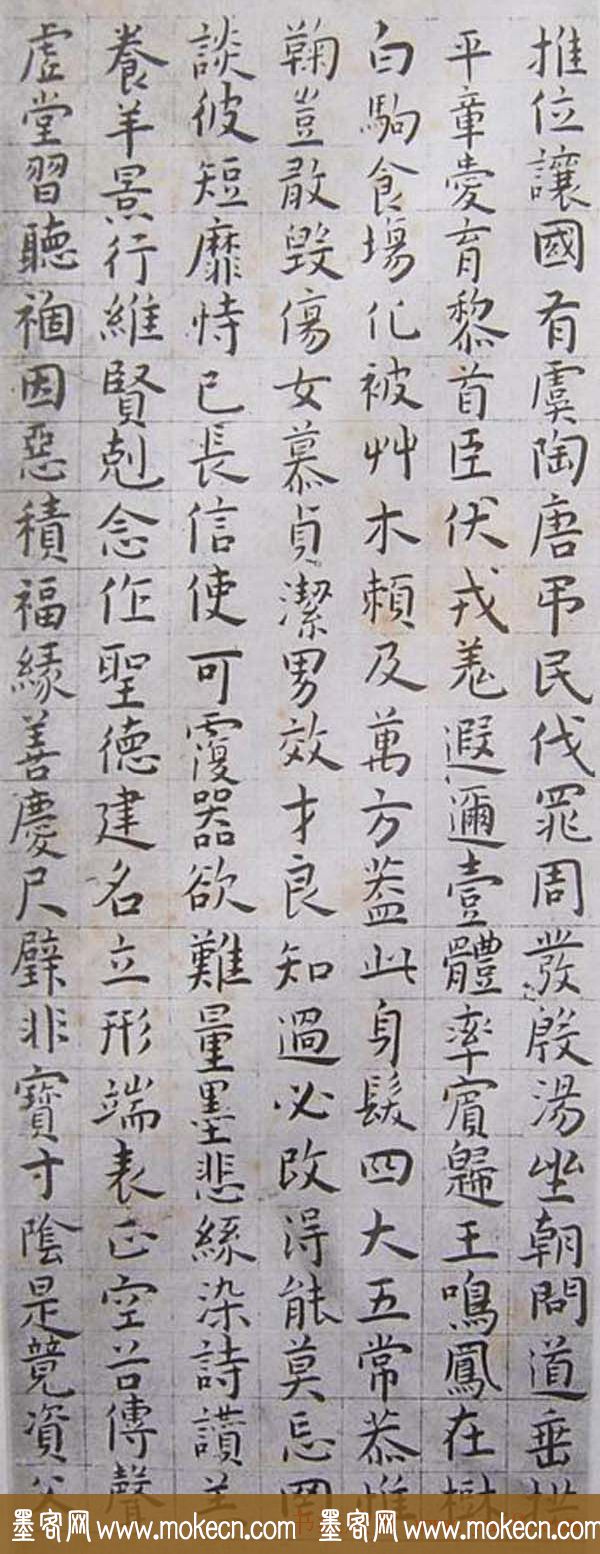 推位讓國有虞陶唐弔民伐罪周發殷湯坐朝問道垂拱
平章愛育黎首臣伏戎羌遐邇壹體率賓歸王鳴鳳在樹
白駒食場化被艸木賴及萬方蓋此身髮四大五常恭惟
鞠豈敢毀傷女慕貞潔男效才良知過必改得能莫忘罔
談彼短靡恃己長信使可覆器欲難量墨悲絲染詩讚羔
養羊景行維賢剋念作聖德建名立形端表正空谷傳聲
虛堂習聽禍因惡積福緣善慶尺璧非寶寸陰是競資父
墨客网 www.mokecn.com 墨客网 www.mokecn.com